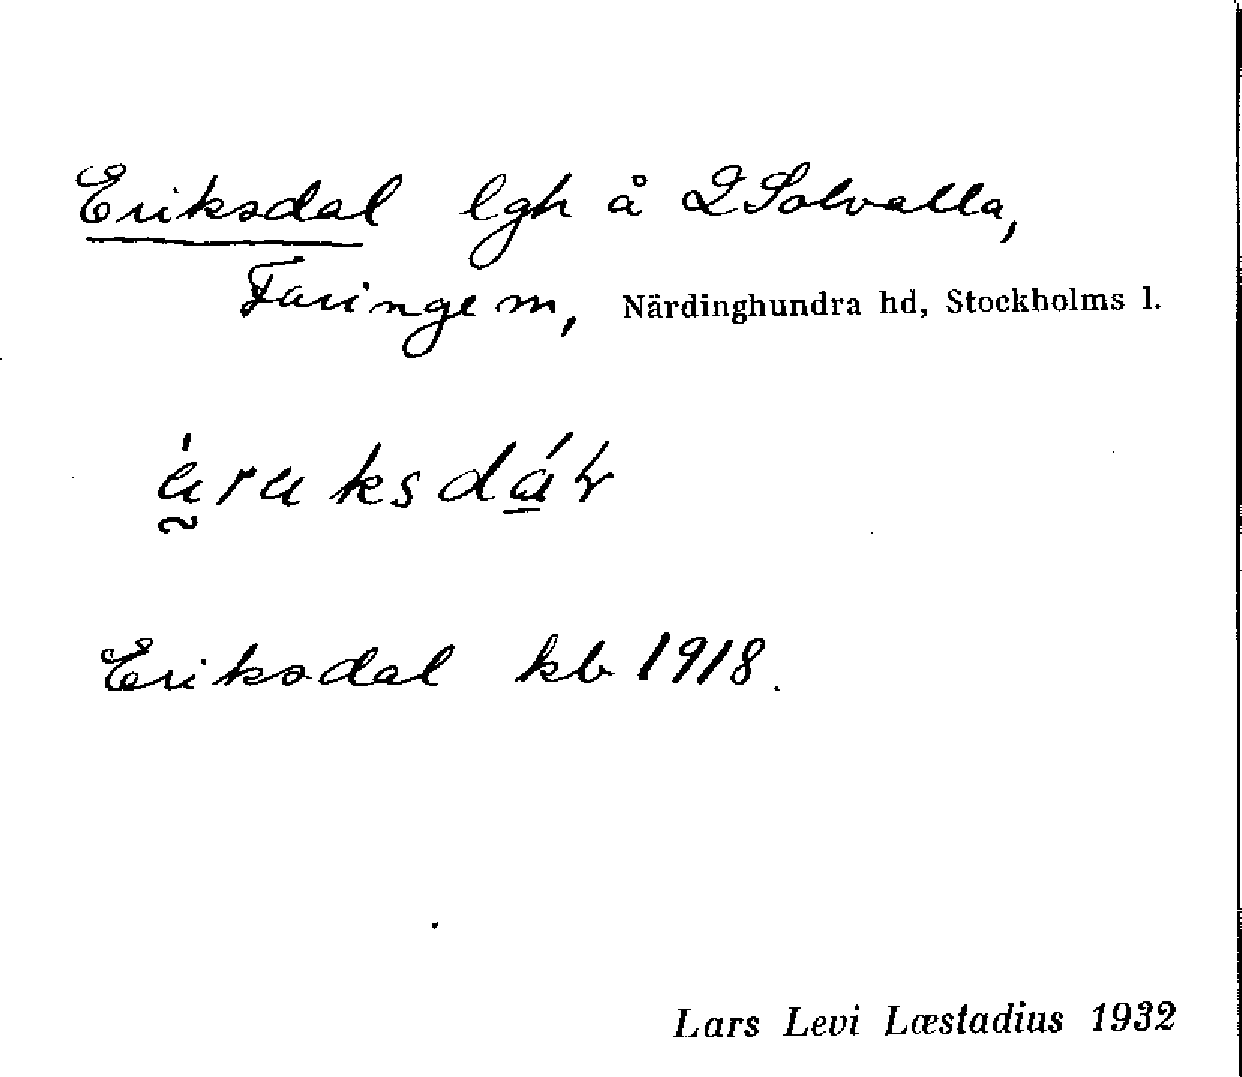 Eriksdal lgh å 2 Solvalla,
Faringe sn, Närdinghundra hd, Stockholms l.
Eriksdal kb 1918.
Lars Levi Læstadius 1932